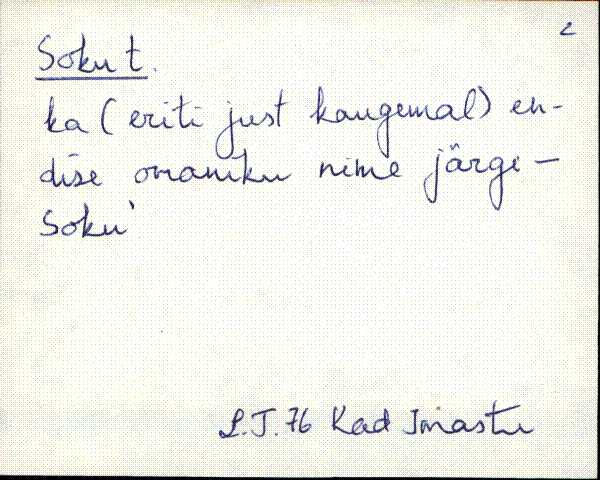 2
Soku t.
ka (eriti just kaugemal) en-
dise omaniku nime järgi –
Soku'
L.J. 76 Kad Imastu